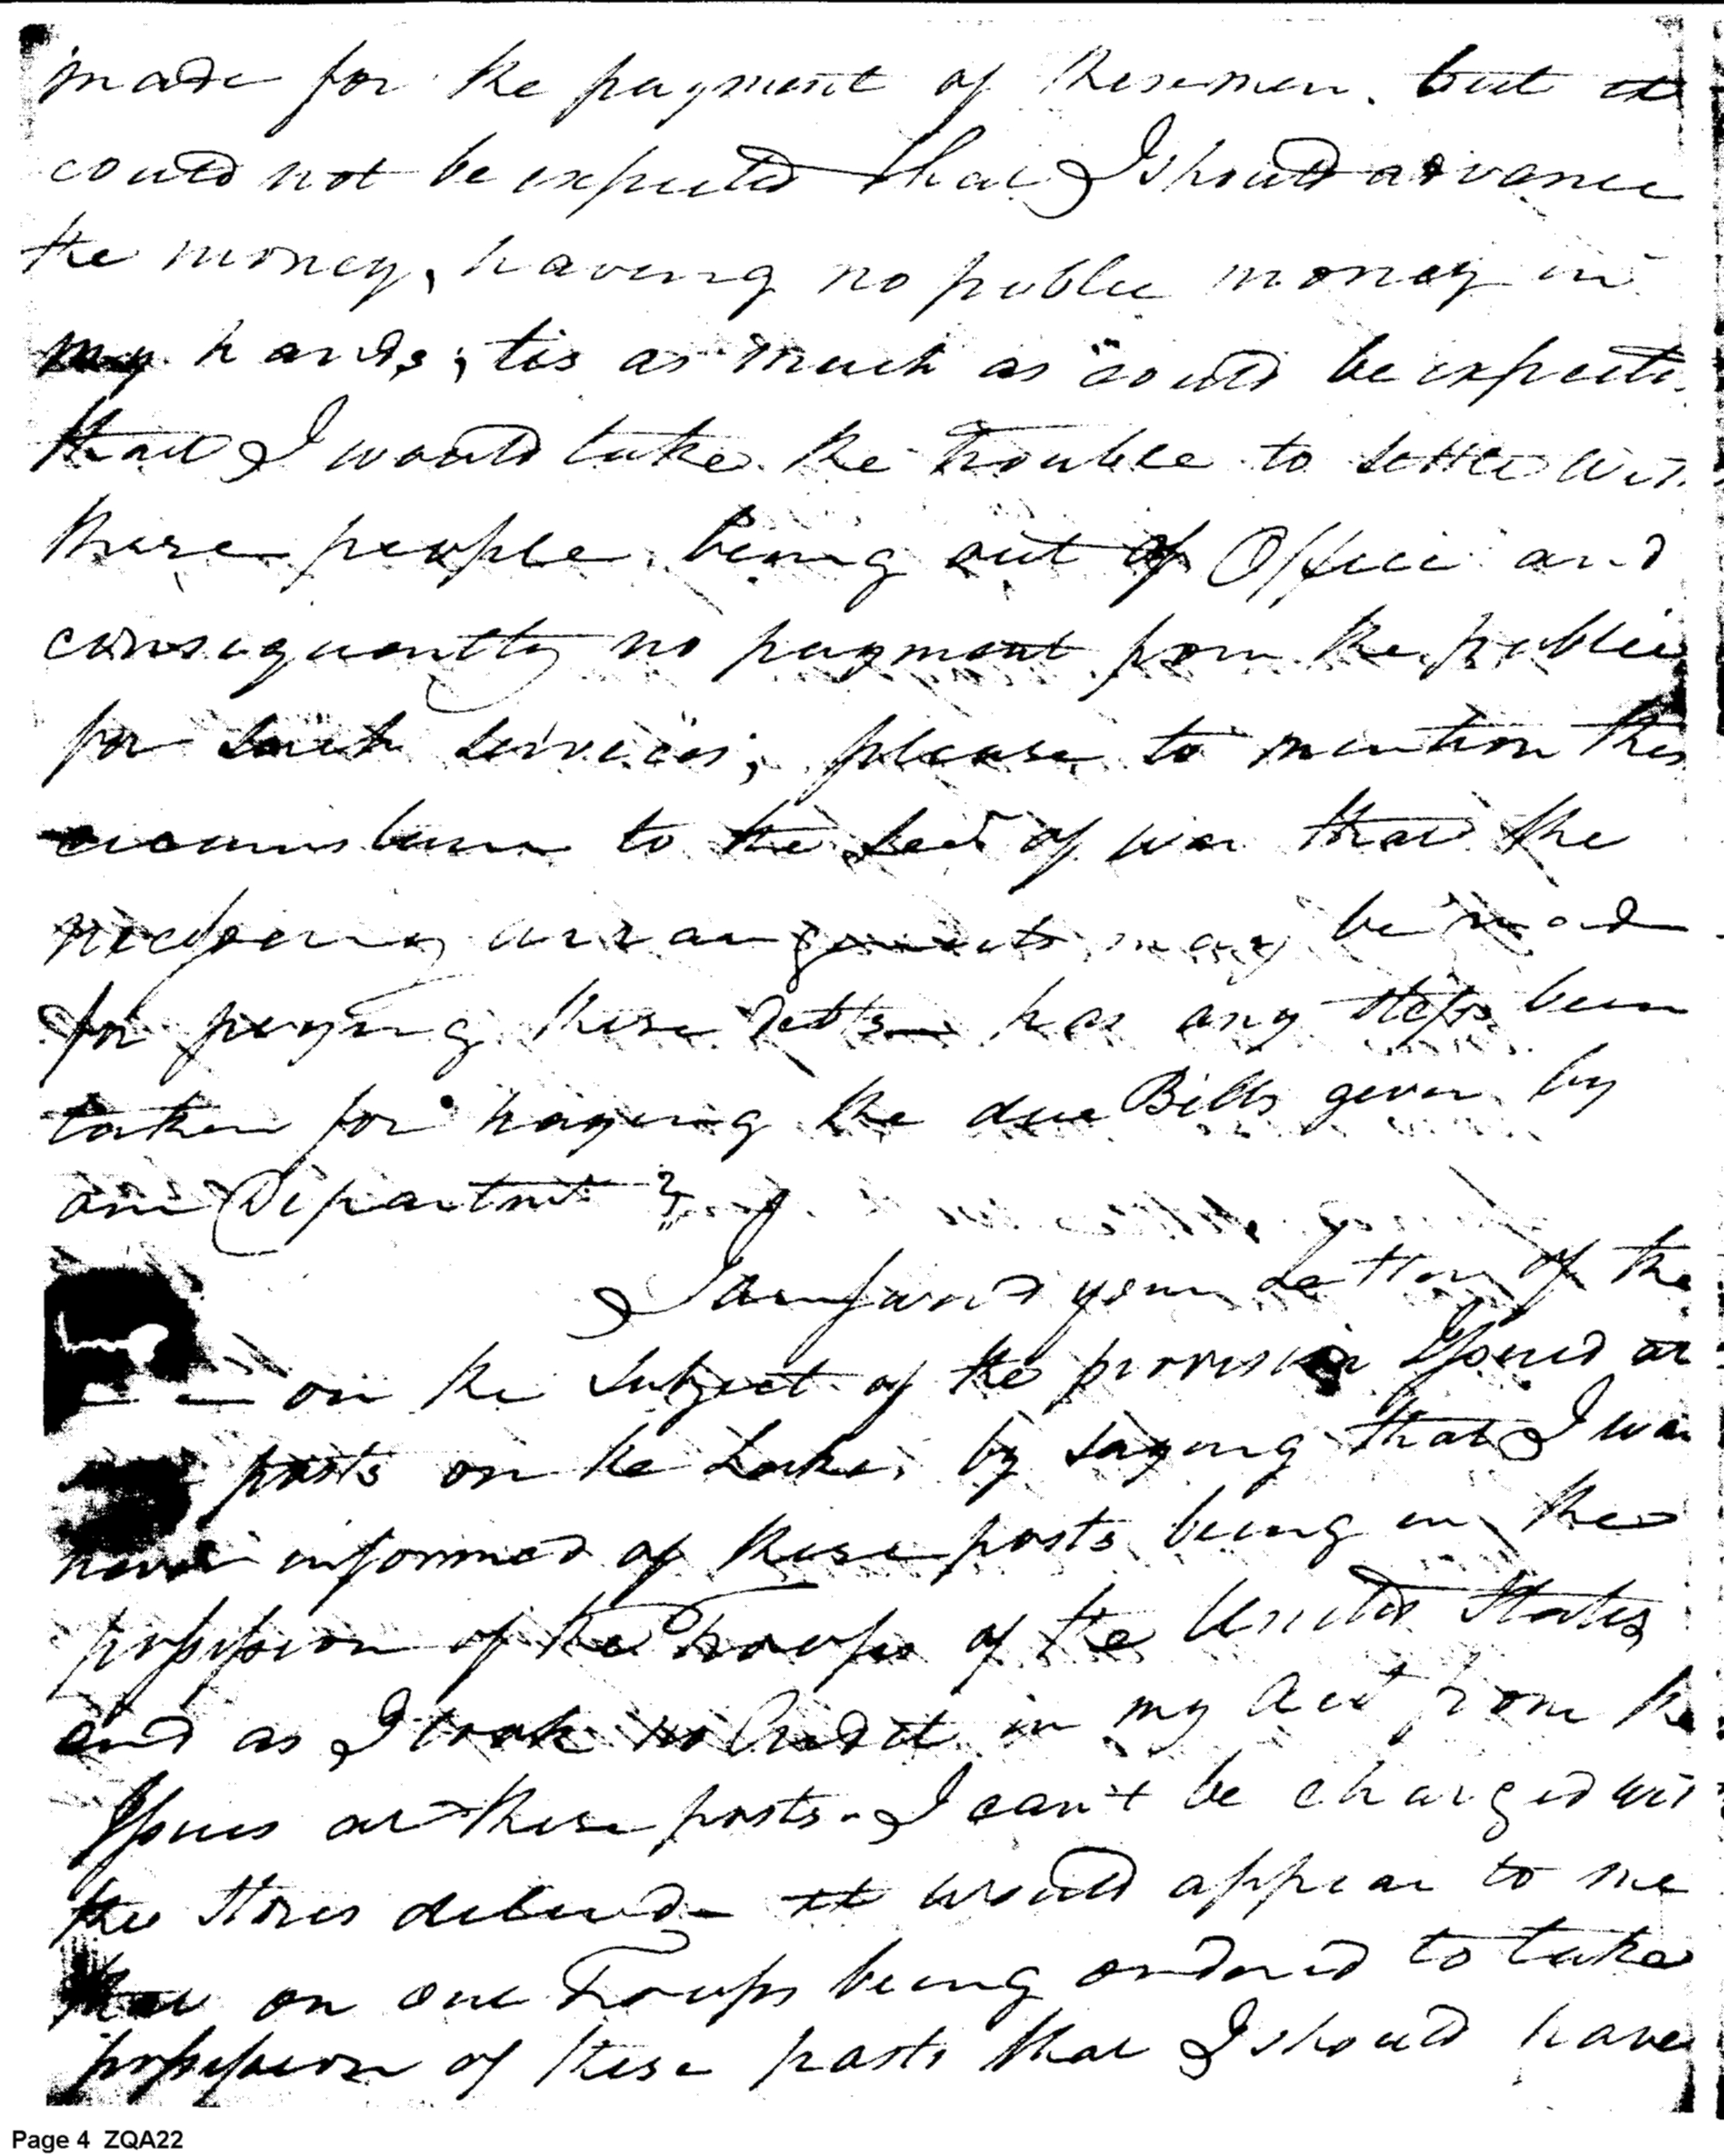 made for the payment of these men. but it
could not be expected that I should advance
the money, having no public money in
my hands; tis as much as could be expected
that I would take the trouble to settle with
these people being out of Office and
consequently no payment from the public
for such services; please to mention this
circumstance to the Secy of war that the
necessary arrangements may be made
for paying these debts — has any steps been
taken for paying the due Bills given by
our Department?
I answered your Letter of the
— — on the subject of the provision Issued at
posts on the Lake, by saying that I was
never informed of these posts being in the
possession of the Troops of the United States
and as I took no Credit in my Acct from the
Issues at these posts. I can't be charged with
the Stores delivd — it would appear to me
that on our Troops being ordered to take
possession of these posts that I should have
Page 4 ZQA22